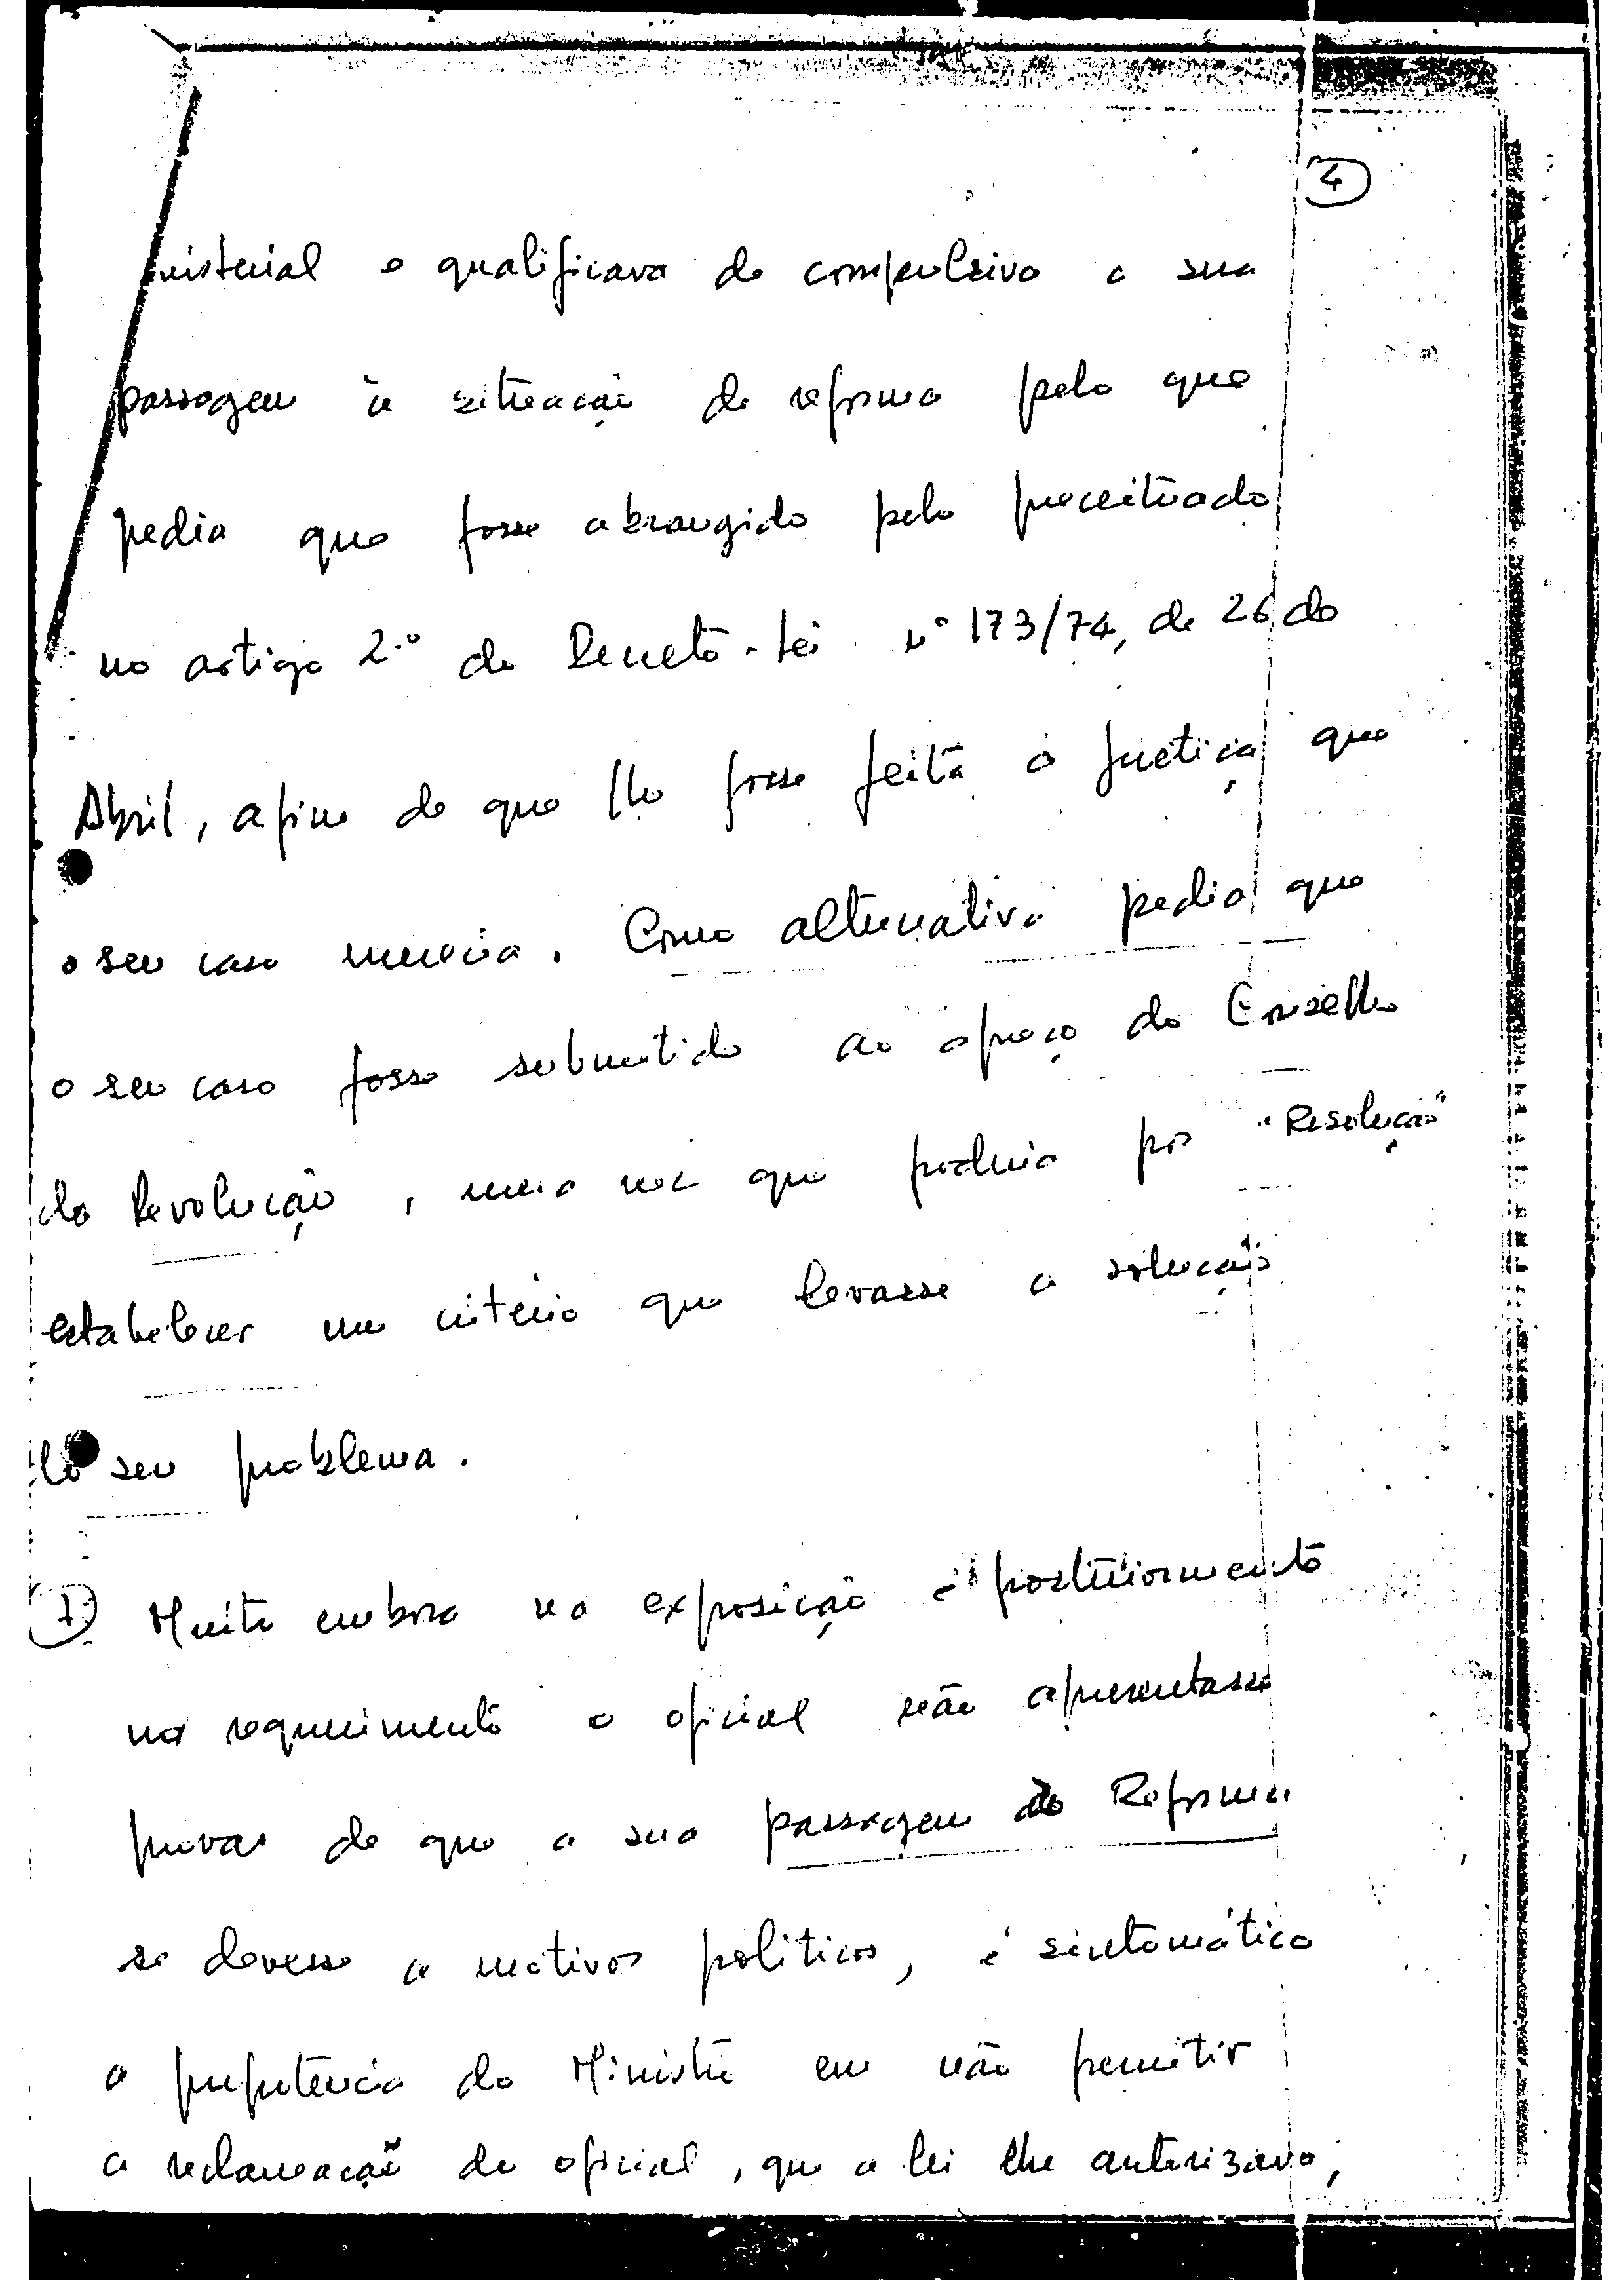 4
nisterial e qualificava de compulsiva a sua
passagem à situação de reforma pelo que
pedia que fosse abrangido pelo preceituado
no artigo 2.º do Decreto-Lei nº 173/74, de 26 de
Abril, afim de que lhe fosse feita a justiça que
o seu caso merecia. Como alternativa pedia que
o seu caso fosse submetido ao apreço do Conselho
da Revolução, uma vez que poderia por "Resolução"
estabelecer um critério que levasse a solução
do seu problema.
7) Muito embora na exposição e posteriormente
no requerimento o oficial não apresentasse
provas de que a sua passagem à Reforma
se devesse a motivos politicos, é sintomática
a prepotência do Ministro em não permitir
a reclamação do oficial, que a lei lhe autorizava,